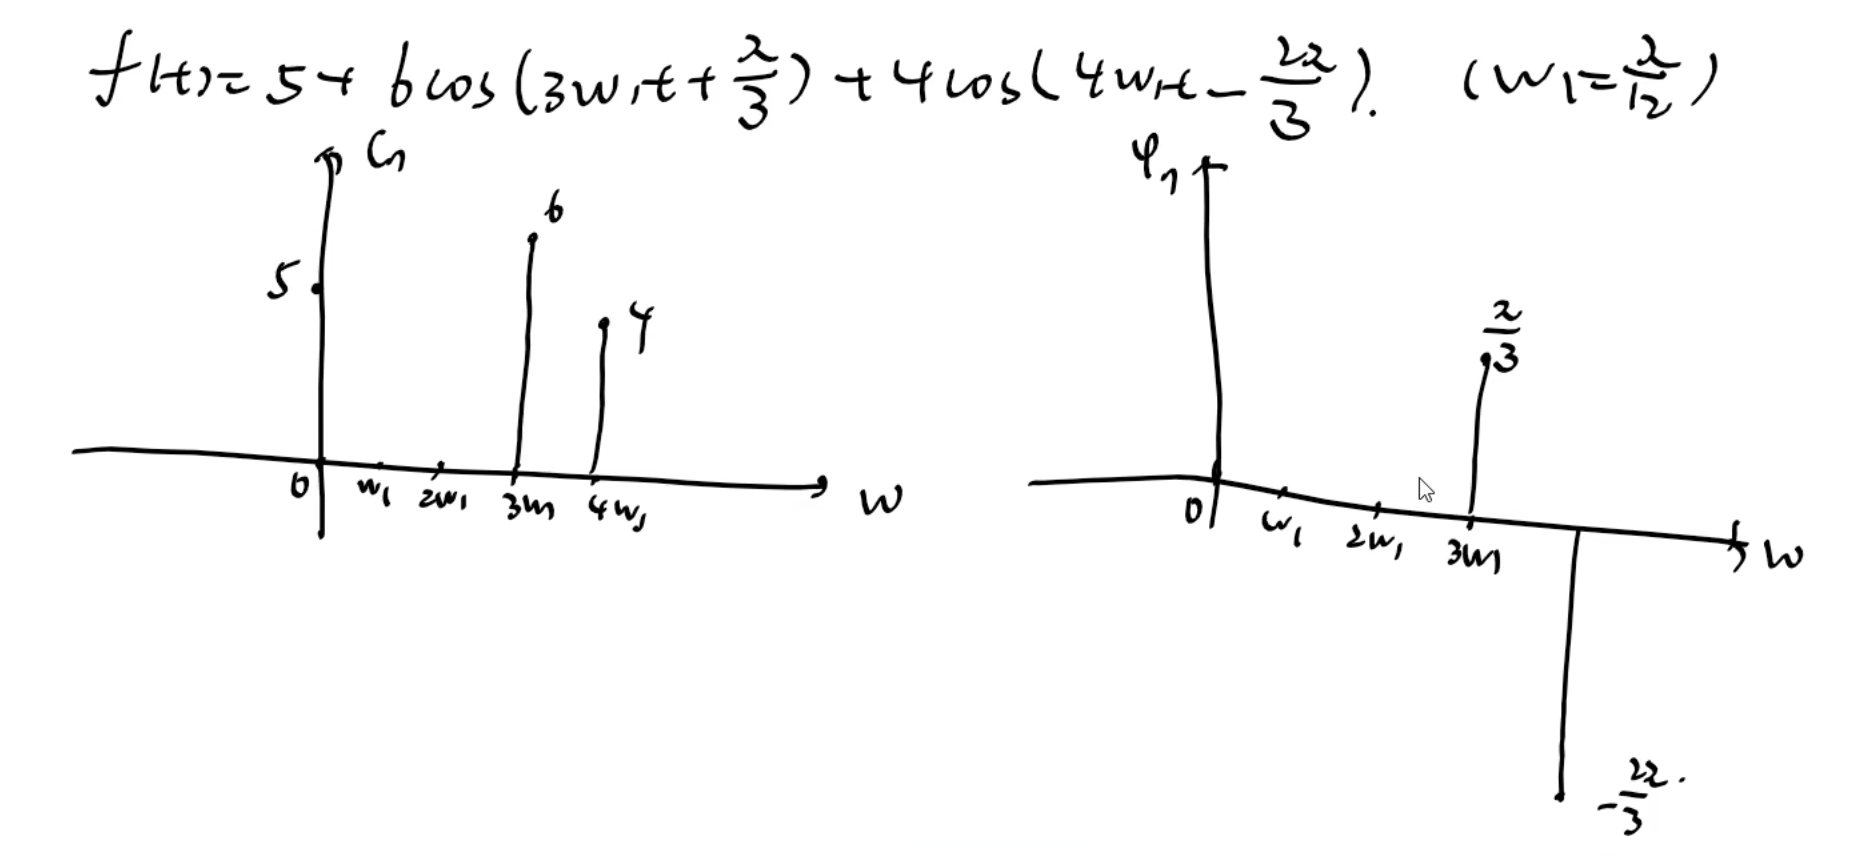 f(t)= 5+ 6cos(3w₁t + π/3) + 4cos(4w₁t - 2π/3). (w₁=π/12)
Cn
φn
6
5
4
π/3
0 w₁ 2w₁ 3w₁ 4w₁ w
0 w₁ 2w₁ 3w₁ w
-2π/3.